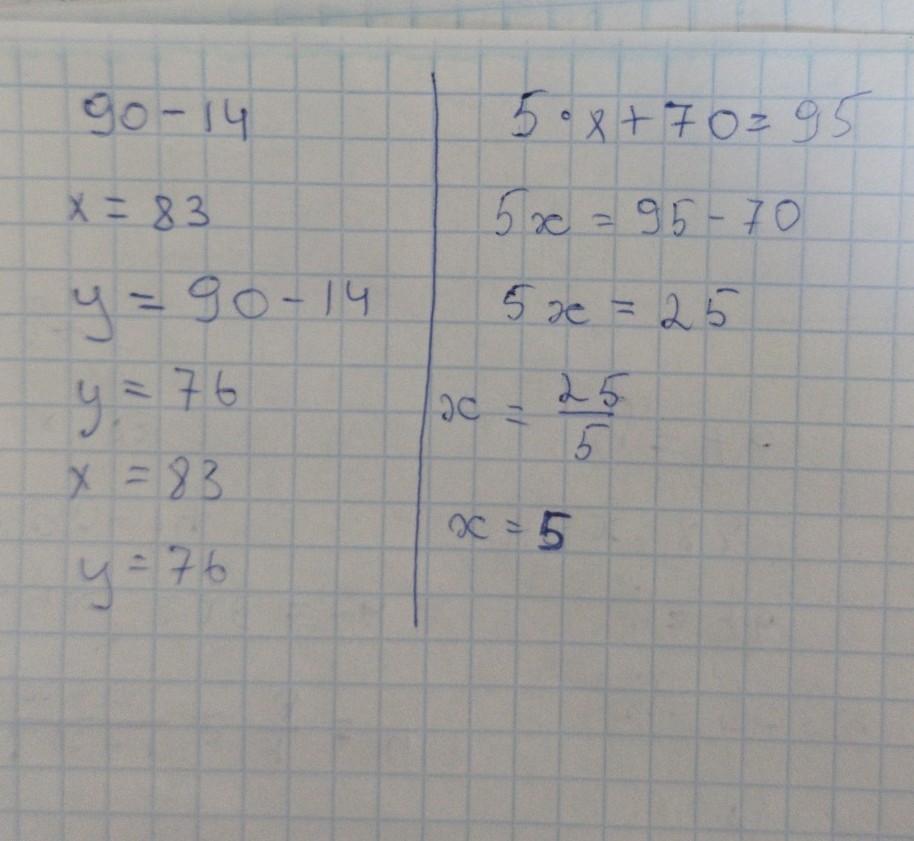 90-14
x = 83
y = 90-14
y = 76
x = 83
y = 76
5·x+70=95
5x = 95-70
5x = 25
x = 25/5
x = 5